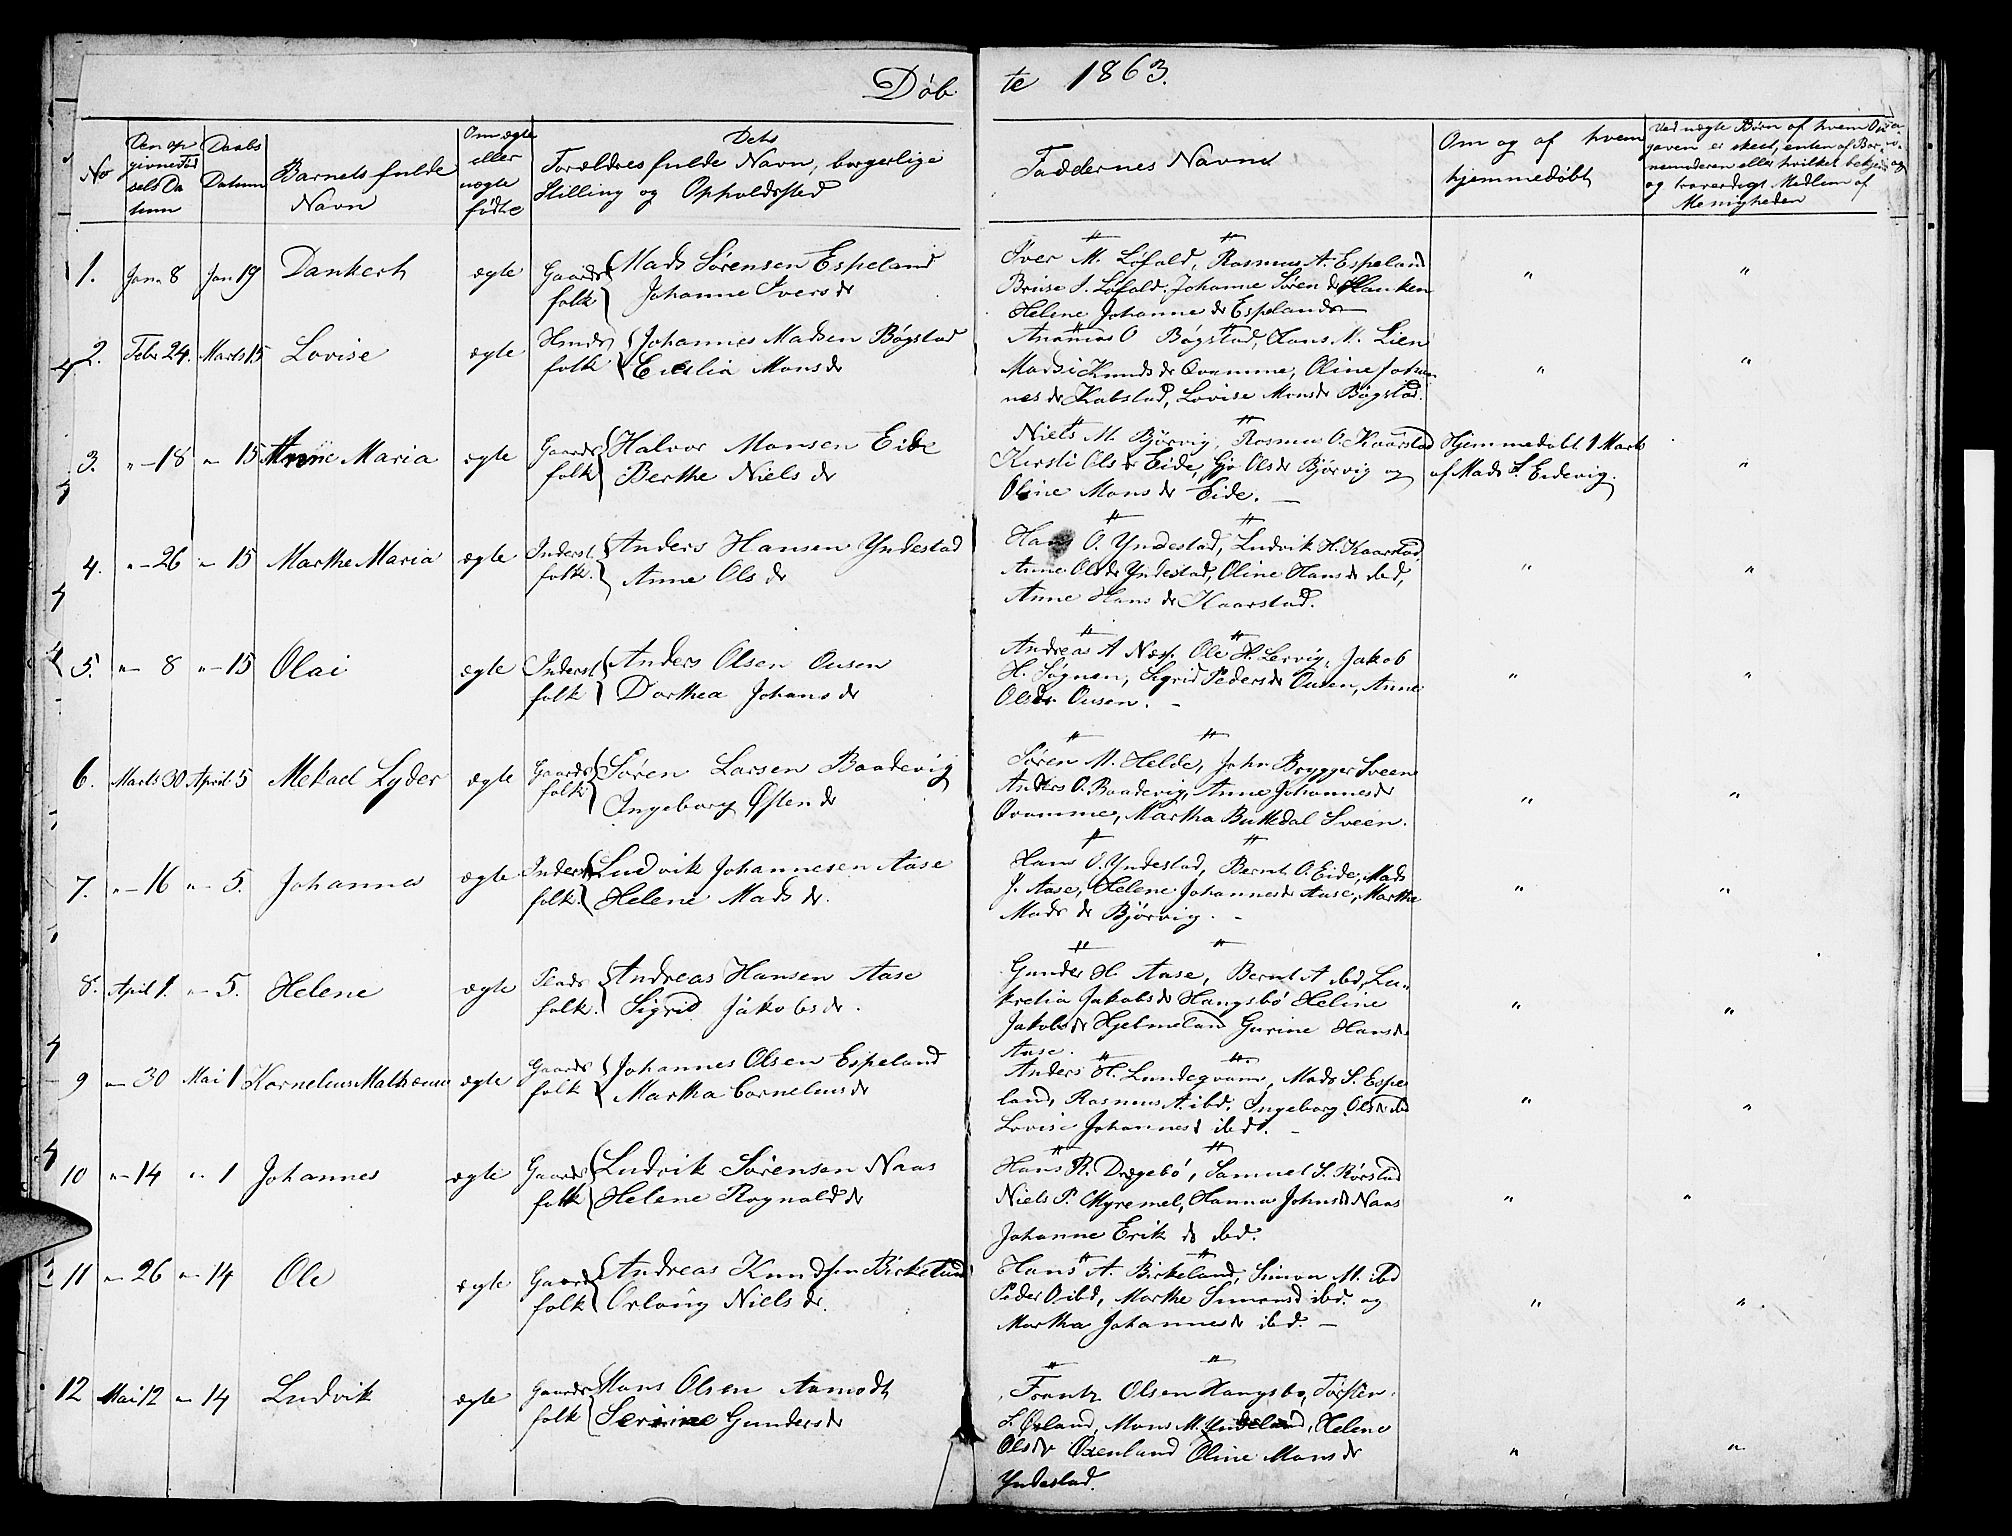 Døbte 1863.
No
Den opgivne Fødsels Datum
Daabs Datum
Barnets fulde Navn
Om ægte eller uægte fødte
Dets Forældres fulde Navn, borgerlige Stilling og Opholdssted
Faddernes Navne
Om og af hvem hjemmedøbt
Ved uægte Børn af hvem Opgaven er skeet, enten af Barnemoderen eller hvilket bekjendt og troværdigt Medlem af Menigheden
1. Jan. 8 Jan 19 Dankert ægte Gaardfolk Mads Sørensen Espeland
Johanne Iversdr
Iver M. Løfald, Rasmus A. Espeland
Brise I. Løfald. Johanne Sørendr Hauken
Helene Johannedr Espeland
2. Febr 24. Marts 15 Lovise ægte Hmdsfolk Johannes Madsen Bøgstad
Eeslia Monsdr
Ananias O Bøgstad, Hans M. Lien
Madsi Knudsdr Qvamme, Oline Johannesdr Kabstad, Lovise Monsdr Bøgstad.
3. " 18 " 15 Anne Maria ægte Gaardsfolk Halvor Monsen Eide
Berthe Nielsdr
Niels M. Bjørvig, Rasmus O. Kaarstad
Kirsti Olsdr Eide, Gjo Olsdr Bjørvig og
Oline Monsdr Eide.
Hjemmedøbt 1 Marts
af Mads S. Eidevig.
4. " 26 " 15 Marthe Maria ægte Inderstfolk. Anders Hansen Yndestad
Anne Olsdr
Hans O. Yndestad, Ludvik H. Kaarstad
Anne Olsdr Yndestad, Oline Hansdr ibd,
Anne Hansdr Kaarstad.
5. " 8 " 15 Olai ægte Inderstfolk Anders Olsen Ousen
Dorthea Johansdr
Andreas A Næss. Ole H. Lervig, Jakob
H. Søgnen, Sigrid Pedersdr Ousen, Anne
Olsdr Ousen.
6. Marts 30 April 5 Mekael Lyder ægte Gaardsfolk Søren Larsen Baadevig
Ingeborg Østendr
Søren M. Helde, John Brygger Sveen
Anders O. Baadevig, Anne Johannesdr
Qvamme, Martha Buttedal Sveen.
7. " 16 " 5. Johanna ægte Inderstfolk. Ludvik Johannesen Aase
Helene Madsdr.
Hans O. Yndestad, Bernt O. Eide, Mads
J. Aase, Helene Johannesdr Aase, Martha
Madsdr Bjørvig.
8. April 1. " 5. Helene ægte Pladsfolk. Andreas Hansen Aase
Sigrid Jakobsdr.
Gunder H. Aase, Bernt A ibd, Lukretia Jakobsdr Hangsbø Heline
Jakobsdr Hjelmeland Gurine Hansdr
Aase.
9 " 30 Mai 1 Kornelius Matheus ægte Gaardsfolk Johannes Olsen Espeland
Martha Corneliusdr
Anders H. Lundeqvam, Mads S. Espeland, Rasmus A. ibd. Ingeborg Olsdr ibd
Lovise Johannesd ibd.
10 " 14 " 1 Johannes ægte Gaardsfolk Ludvik Sørensen Naas
Helene Rognalddr
Hans R. Drægebø, Samuel S. Rørstad
Niels P. Myremel, Hanna Johnsdr Naas
Johanne Erikdr ibd.
11 " 26 " 14 Ole ægte Gaardfolk Andreas Knudsen Birkeland
Orlaug Nielsdr.
Hans A. Birkeland, Simon M. ibd
Peder O ibd, Marthe Simonsd ibd. og
Martha Johannesdr ibd.
12 Mai 12 " 14 Ludvik ægte Gaardsfolk Hans Olsen Aamodt
Serine Gundersdr
Frantz Olsen Hangsbø, Torsten
S. Øxland, Mons M. Yndeland, Helene
Olsdr Oxenland Oline Monsdr
Yndestad.